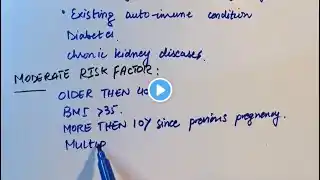 • Existing auto-imune condition
Diabetes
chronic kidney diseases.
MODERATE RISK FACTOR:
OLDER THEN 40
BMI >35.
MORE THEN 10Y since previous pregnancy.
Multip